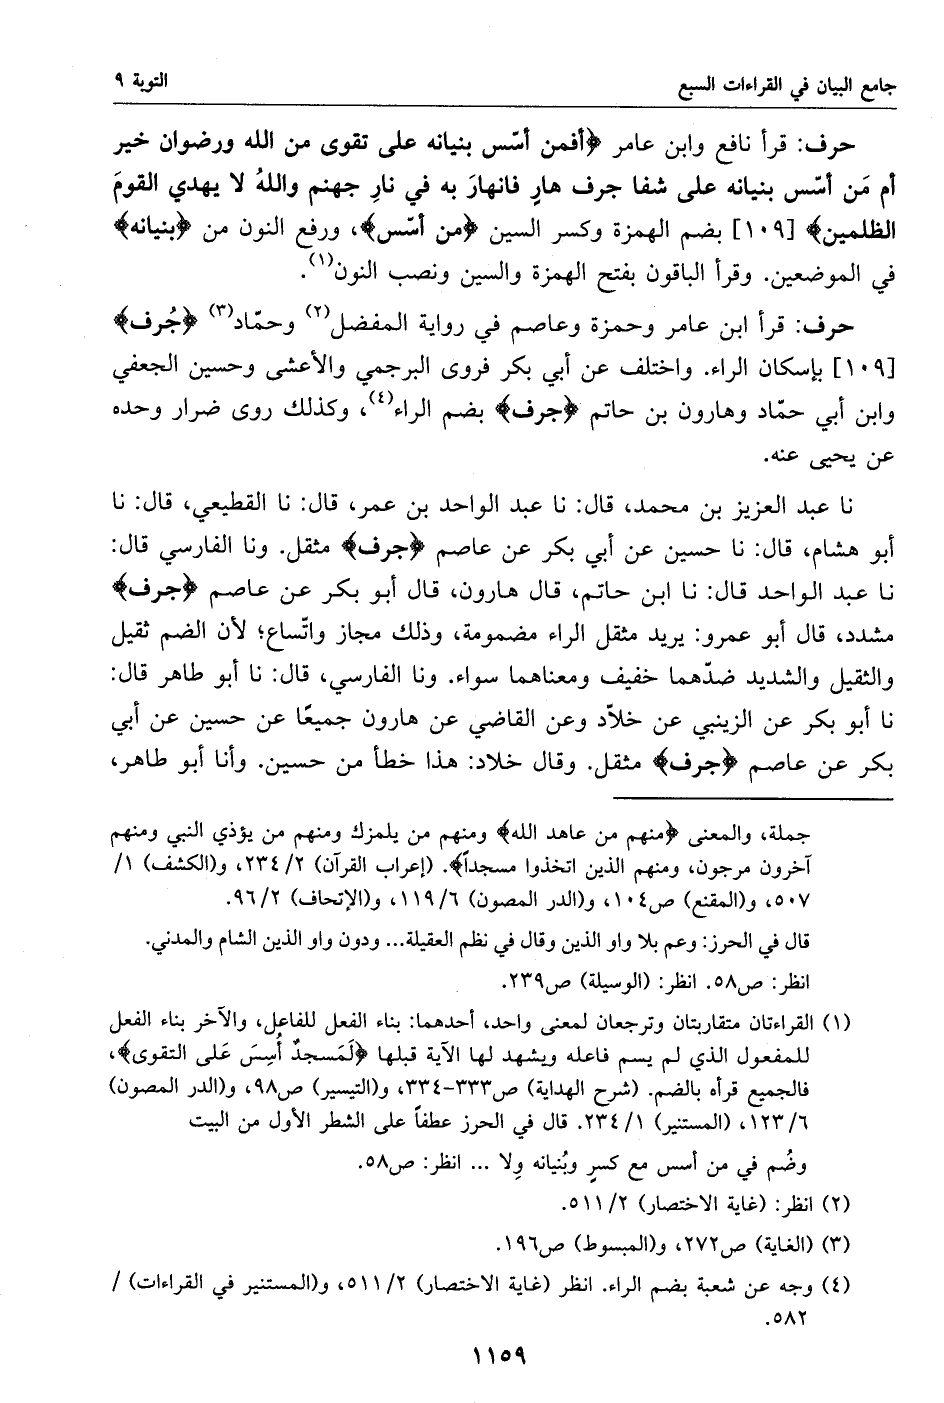 جامع البيان في القراءات السبع
التوبة ٩
حرف: قرأ نافع وابن عامر ﴿أفمن أسّس بنيانه على تقوى من الله ورضوان خير
أم مَن أسّس بنيانه على شفا جرف هارٍ فانهارَ به في نارِ جهنم واللهُ لا يهدي القومَ
الظلمين﴾ [١٠٩] بضم الهمزة وكسر السين ﴿من أسّس﴾، ورفع النون من ﴿بنيانه﴾
في الموضعين. وقرأ الباقون بفتح الهمزة والسين ونصب النون(١).
حرف: قرأ ابن عامر وحمزة وعاصم في رواية المفضل(٢) وحمّاد(٣) ﴿جُرف﴾
[١٠٩] بإسكان الراء. واختلف عن أبي بكر فروى البرجمي والأعشى وحسين الجعفي
وابن أبي حمّاد وهارون بن حاتم ﴿جرف﴾ بضم الراء(٤)، وكذلك روى ضرار وحده
عن يحيى عنه.
نا عبد العزيز بن محمد، قال: نا عبد الواحد بن عمر، قال: نا القطيعي، قال: نا
أبو هشام، قال: نا حسين عن أبي بكر عن عاصم ﴿جرف﴾ مثقل. ونا الفارسي قال:
نا عبد الواحد قال: نا ابن حاتم، قال هارون، قال أبو بكر عن عاصم ﴿جرف﴾
مشدد، قال أبو عمرو: يريد مثقل الراء مضمومة، وذلك مجاز واتّساع؛ لأن الضم ثقيل
والثقيل والشديد ضدّهما خفيف ومعناهما سواء. ونا الفارسي، قال: نا أبو طاهر قال:
نا أبو بكر عن الزينبي عن خلاّد وعن القاضي عن هارون جميعًا عن حسين عن أبي
بكر عن عاصم ﴿جرف﴾ مثقل. وقال خلاد: هذا خطأ من حسين. وأنا أبو طاهر،
جملة، والمعنى ﴿منهم من عاهد الله﴾ ومنهم من يلمزك ومنهم من يؤذي النبي ومنهم
آخرون مرجون، ومنهم الذين اتخذوا مسجداً﴾. (إعراب القرآن) ٢/ ٢٣٤، و(الكشف) ١/
٥٠٧، و(المقنع) ص١٠٤، و(الدر المصون) ٦/ ١١٩، و(الإتحاف) ٢/ ٩٦.
قال في الحرز: وعم بلا واو الذين وقال في نظم العقيلة... ودون واو الذين الشام والمدني.
انظر: ص٥٨. انظر: (الوسيلة) ص٢٣٩.
(١) القراءتان متقاربتان وترجعان لمعنى واحد، أحدهما: بناء الفعل للفاعل، والآخر بناء الفعل
للمفعول الذي لم يسم فاعله ويشهد لها الآية قبلها ﴿لَمَسجدٌ أُسِسَ عَلى التقوى﴾،
فالجميع قرأه بالضم. (شرح الهداية) ص٣٣٣-٣٣٤، و(التيسير) ص٩٨، و(الدر المصون)
٦/ ١٢٣، (المستنير) ١/ ٢٣٤. قال في الحرز عطفاً على الشطر الأول من البيت
وضُم في من أسس مع كسرٍ وبُنيانه وِلا ... انظر: ص٥٨.
(٢) انظر: (غاية الاختصار) ٢/ ٥١١.
(٣) (الغاية) ص٢٧٢، و(المبسوط) ص١٩٦.
(٤) وجه عن شعبة بضم الراء. انظر (غاية الاختصار) ٢/ ٥١١، و(المستنير في القراءات) /
٥٨٢.
١١٥٩